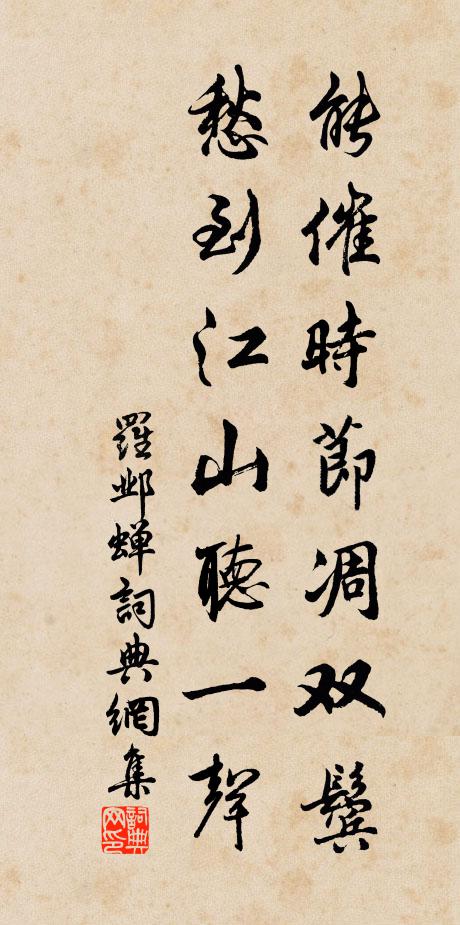 能催時節凋双鬓
愁到江山聽一聲
羅邺蟬詞典網集
詞典网印